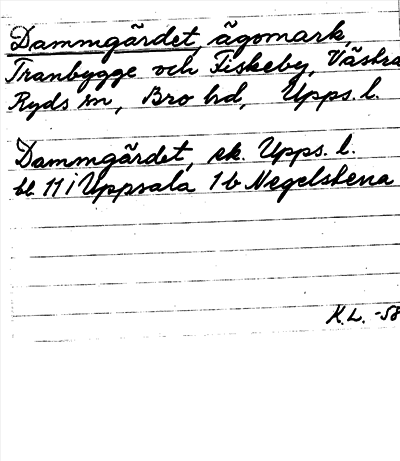 Dammgärdet, ägomark,
Tranbygge och Fiskeby, Västra
Ryds sn, Bro hd, Upps. l.
Dammgärdet, ek. Upps. l.
bl. 11 i Uppsala 1b Negelstena
K.L. -58